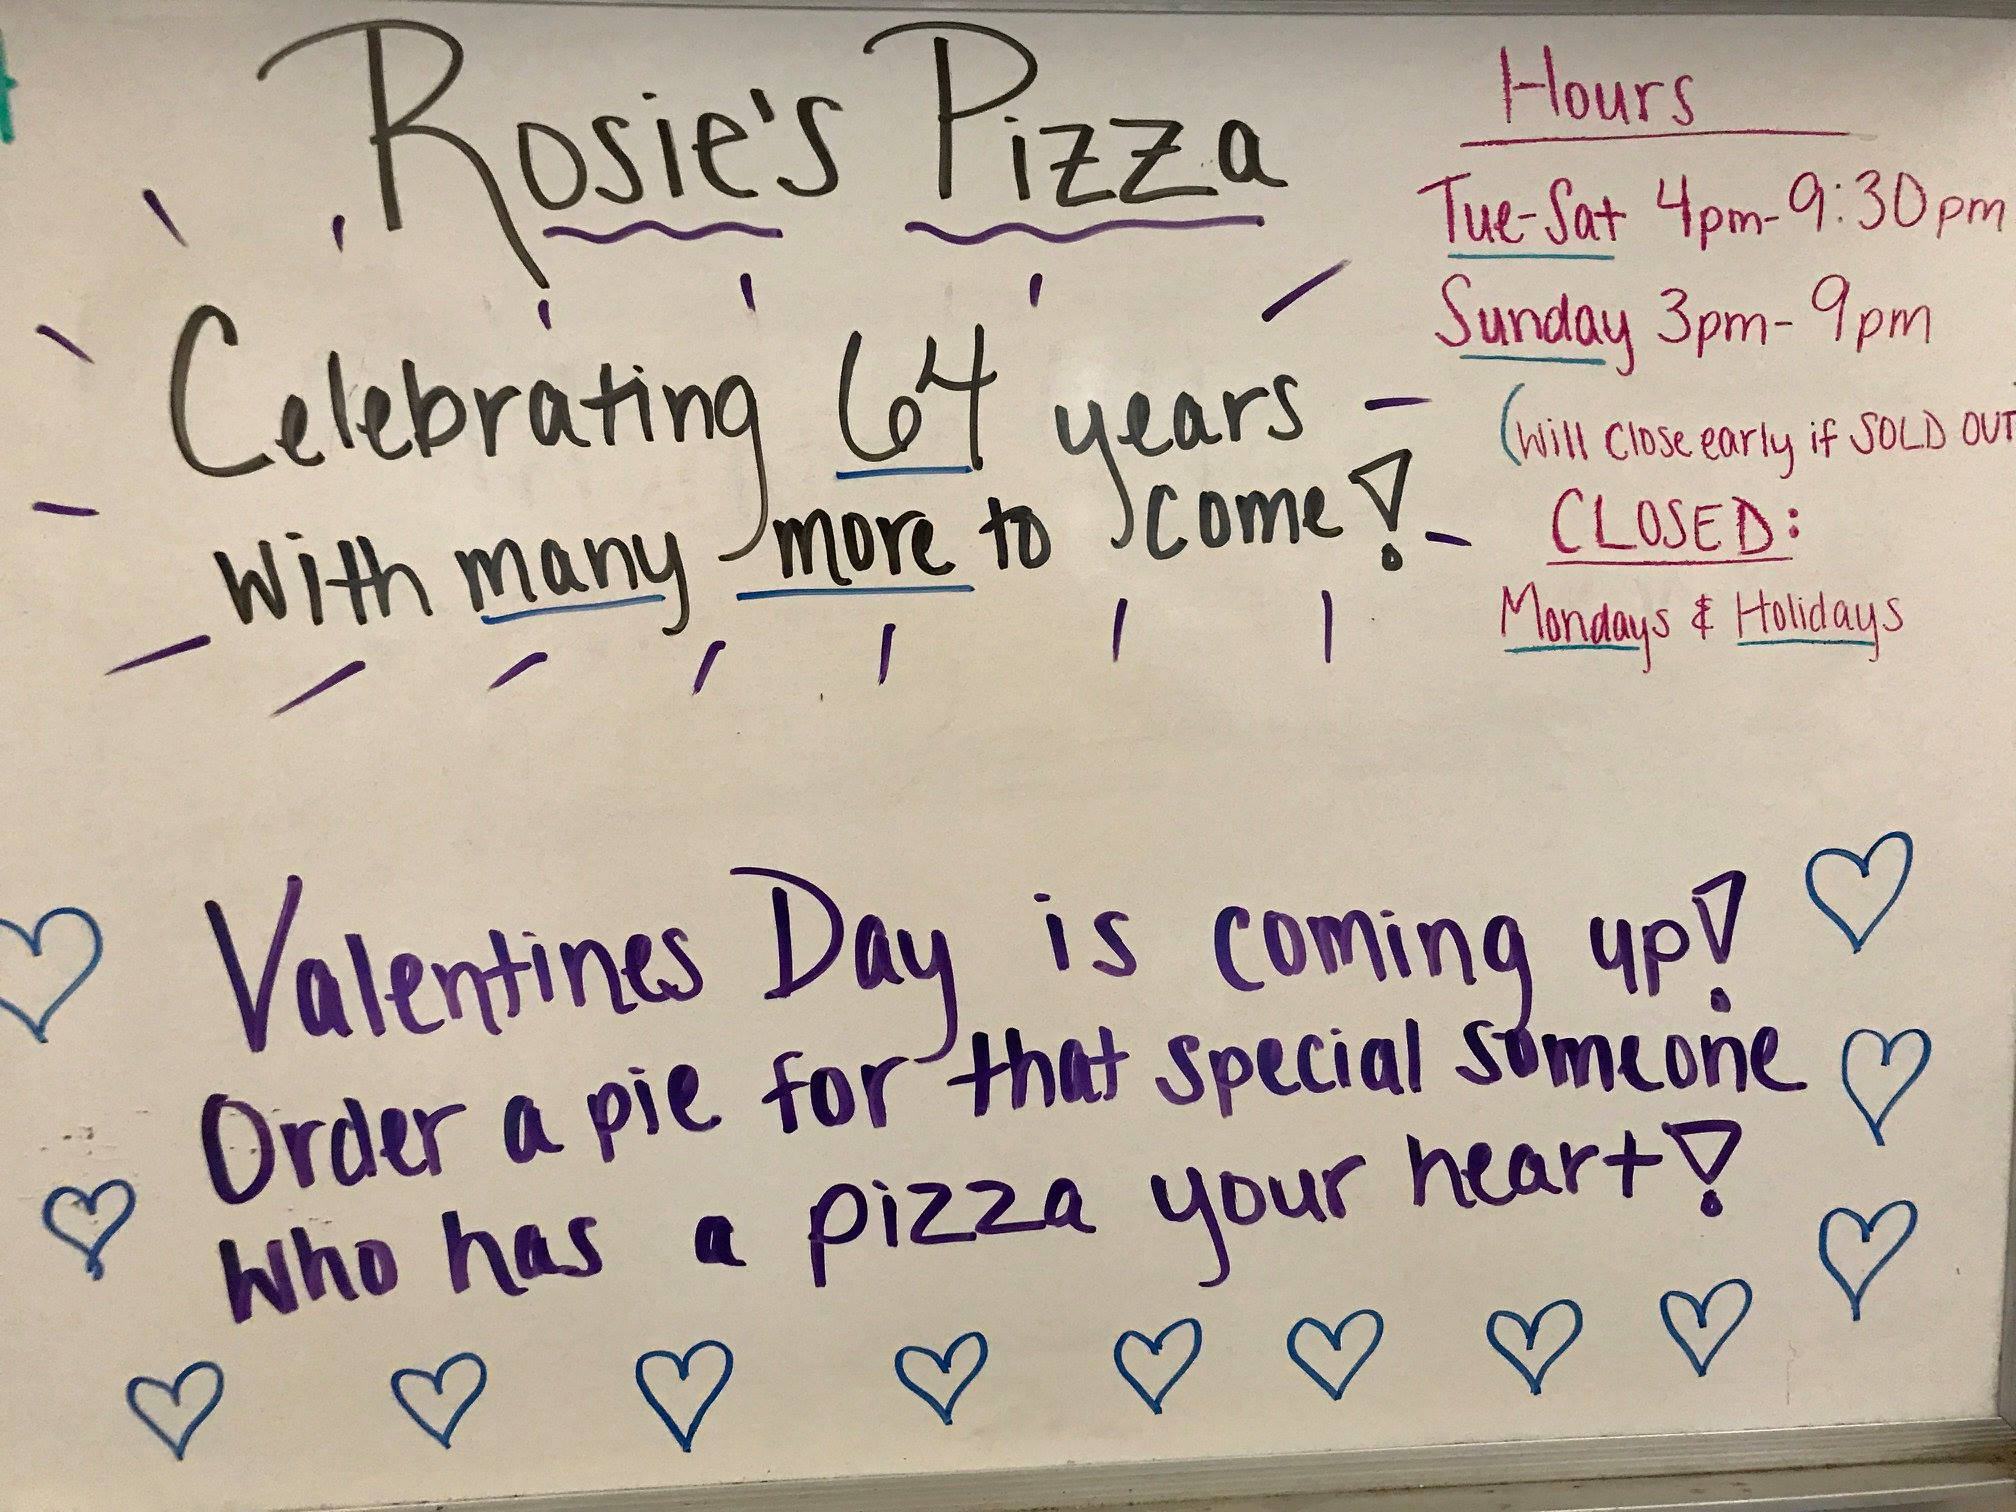 Rosie's Pizza
Celebrating 64 years
with many more to come!
Hours
Tue-Sat 4pm-9:30pm
Sunday 3pm-9pm
(Will close early if SOLD OUT
CLOSED:
Mondays & Holidays
Valentines Day is coming up!
Order a pie for that special someone
who has a pizza your heart!